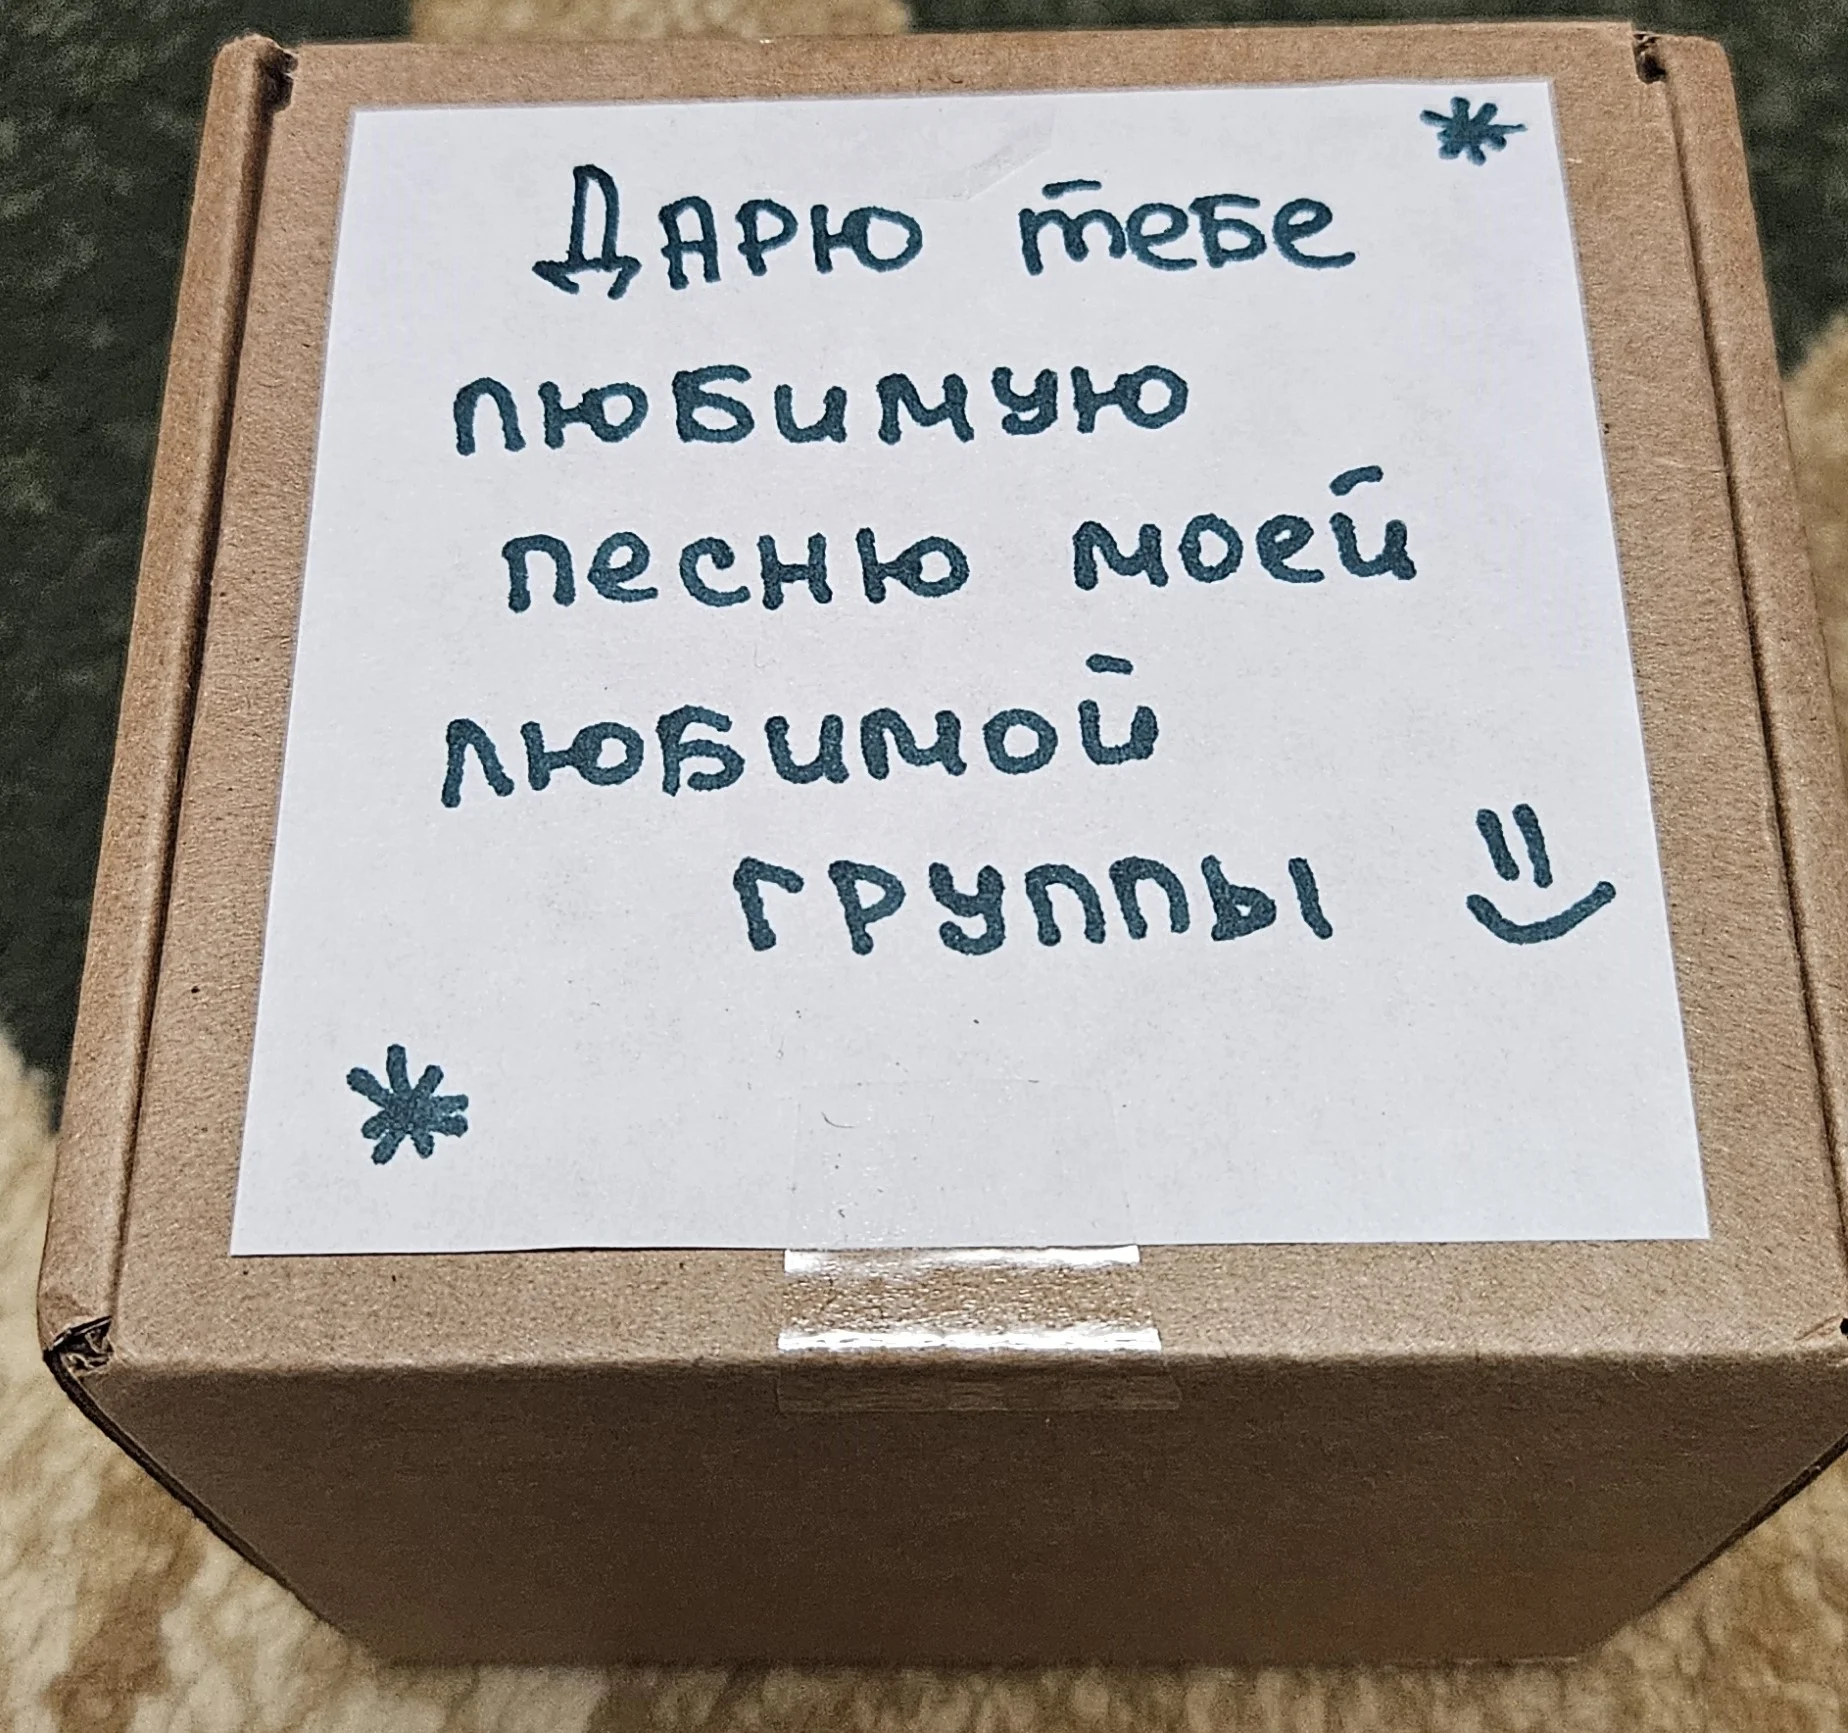 Дарю тебе
любимую
песню моей
любимой
группы